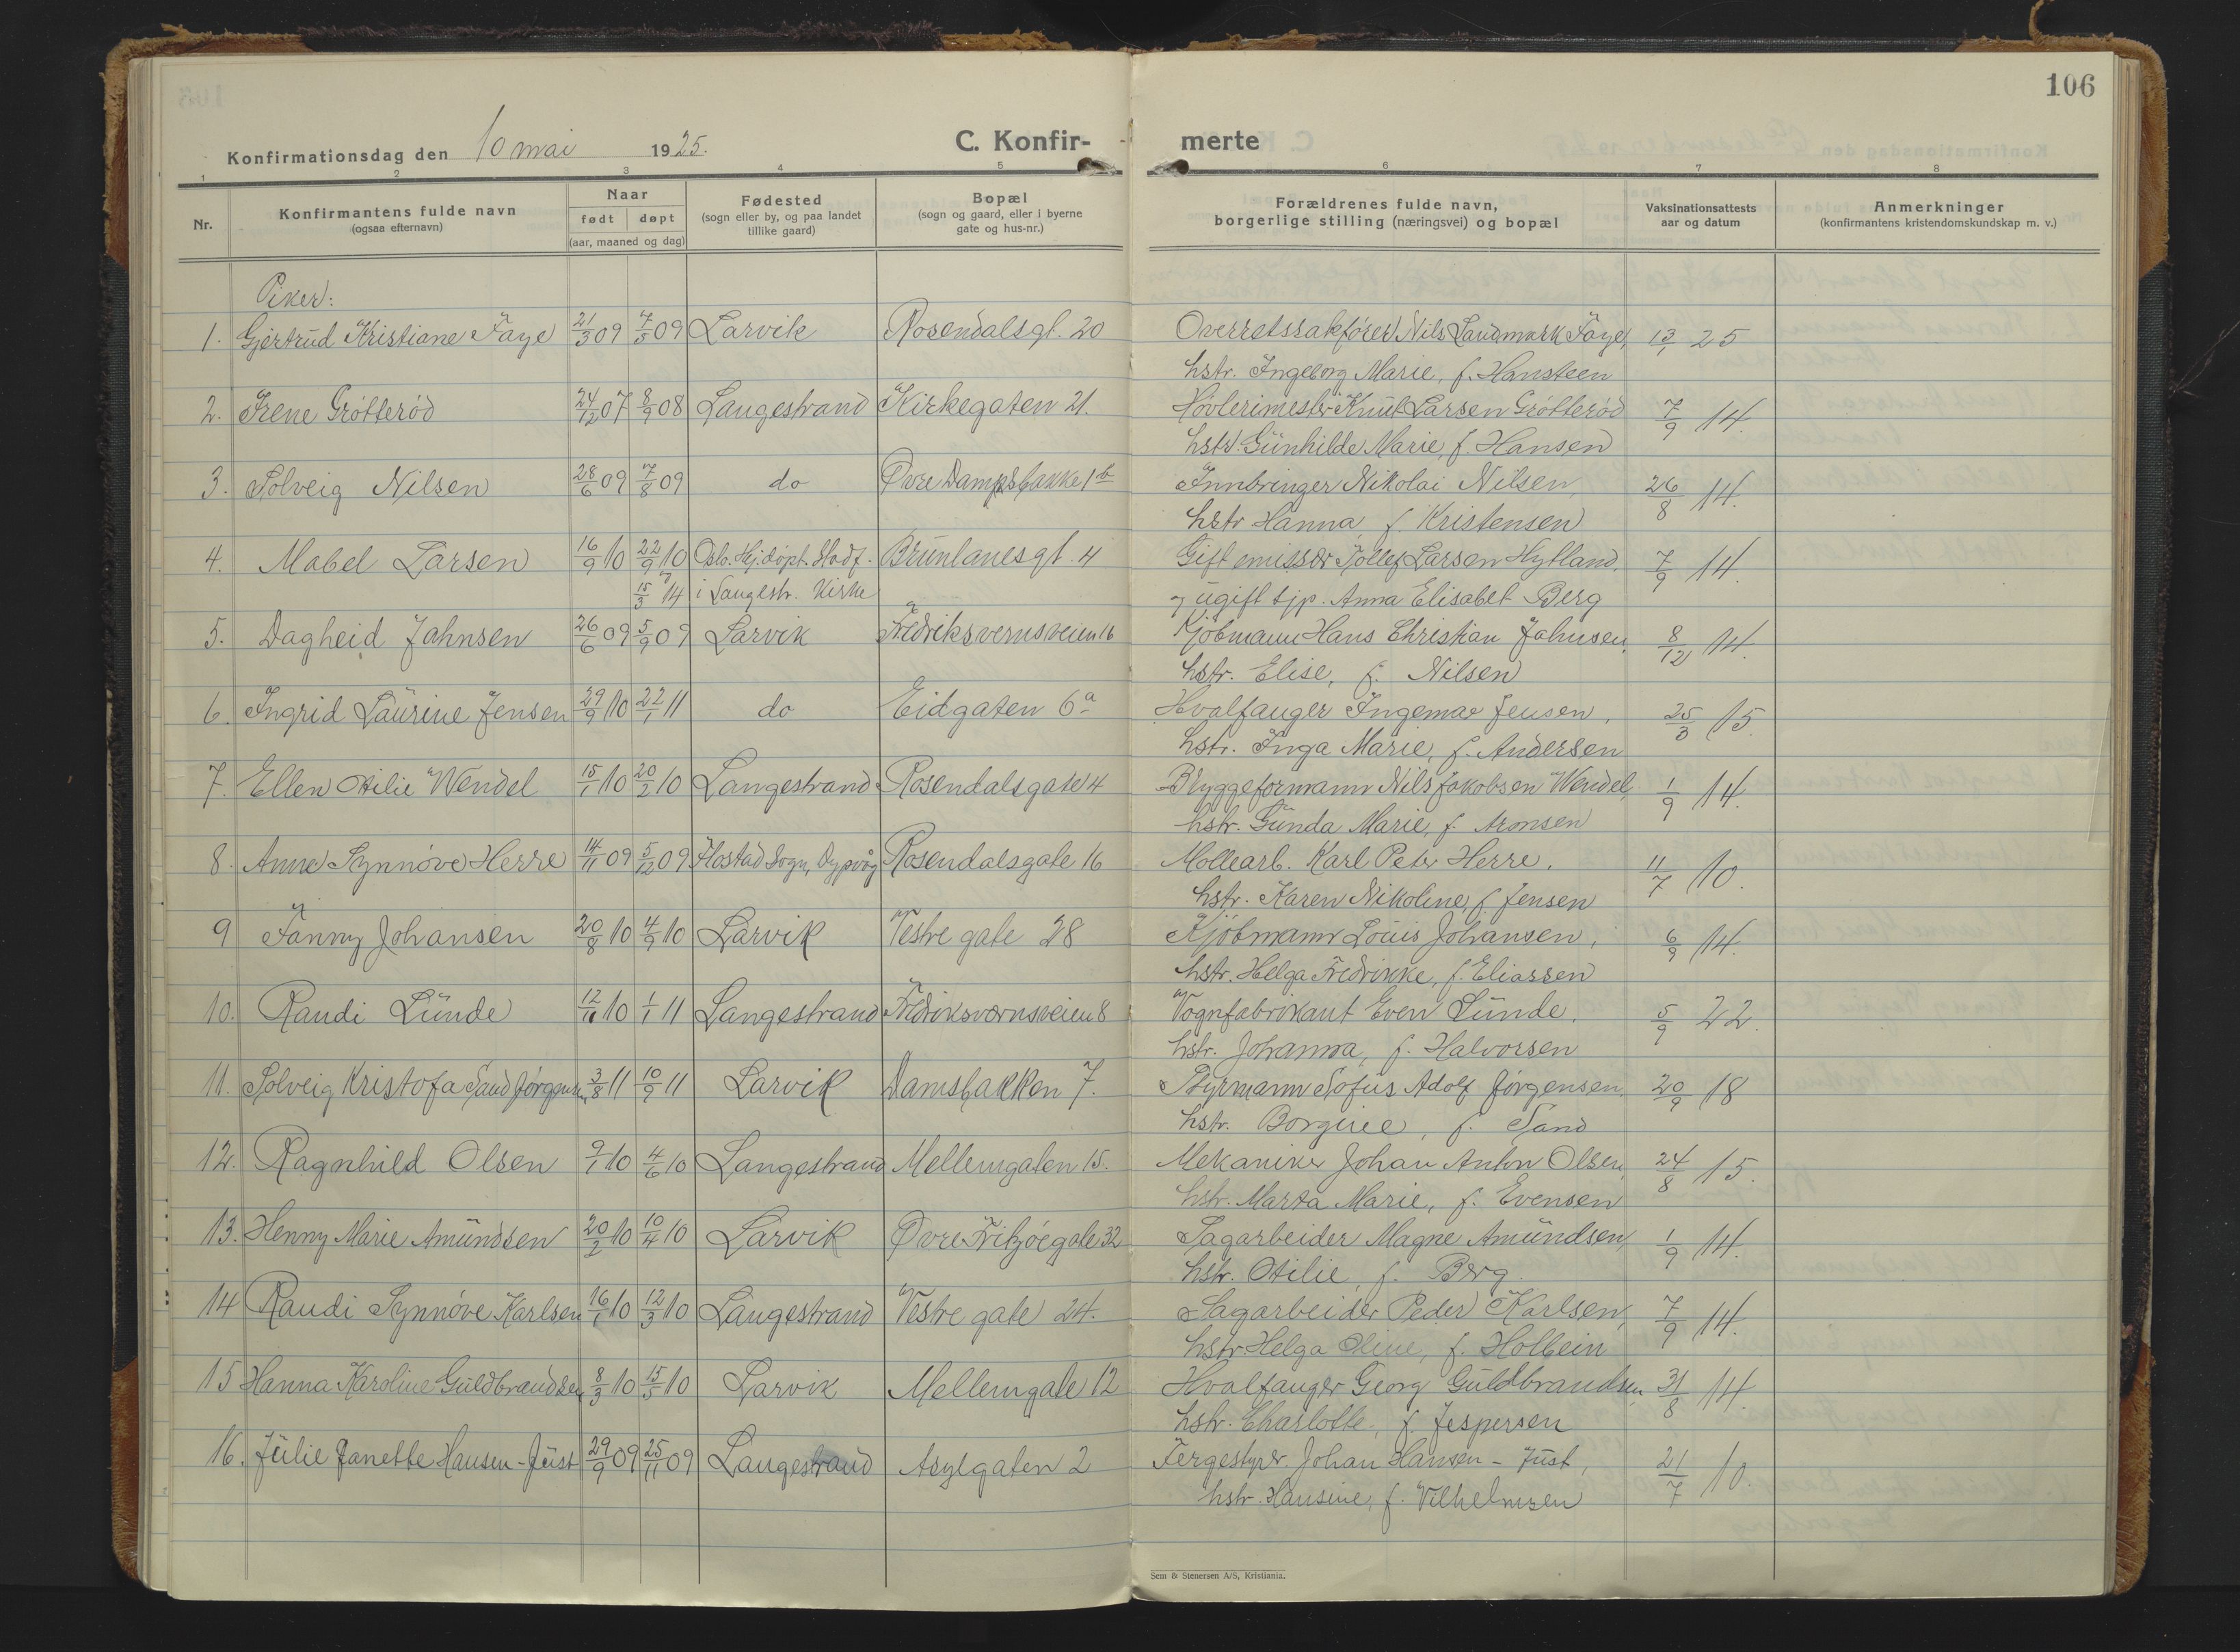 106
Konfirmationsdag den 10 mai 1925.
C. Konfir-merte
1 2 3 4 5 6 7 8
Nr.
Konfirmantens fulde navn
(ogsaa efternavn)
Naar
født døpt
(aar, maaned og dag)
Fødested
(sogn eller by, og paa landet
tillike gaard)
Bopæl
(sogn og gaard, eller i byerne
gate og hus-nr.)
Forældrenes fulde navn,
borgerlige stilling (næringsvei) og bopæl
Vaksinationsattests
aar og datum
Anmerkninger
(konfirmantens kristendomskundskap m. v.)
Piker:
1. Gjertrud Kristiane Faye 21/3 09 7/5 09 Larvik Rosendalsgt. 20 Overretssakfører Nils Landmark Faye, 13/1 25
hstr. Ingeborg Marie, f. Hansteen
2. Irene Grøtterød 24/12 07 8/9 08 Langestrand Kirkegaten 21. Høvlerimester Knut Larsen Grøtterød 7/9 14.
hstr. Gunhilde Marie, f. Hansen
3. Solveig Nilsen 28/6 09 7/8 09 do Øvre Damsbakke 1b Innbringer Nikolai Nilsen, 26/8 14.
hstr Hanna, f. Kristensen
4. Mabel Larsen 16/9 10 22/9 10 Oslo. Hj.døpt. Stadf. Brunlanesgt. 4 Gift emissær Tollef Larsen Hytland, 7/9 14.
og 15/3 14 i Langestr. Kirke og ugift tjp. Anna Elisabet Berg
5. Dagheid Jahnsen 26/6 09 5/9 09 Larvik Fredriksvernsveien 16 Kjøbmann Hans Christian Jahnsen, 8/12 14.
hstr. Elise, f. Nilsen
6. Ingrid Laurine Jensen 29/9 10 22/1 11 do Eidgaten 6a Hvalfanger Ingemar Jensen, 25/3 15.
hstr. Inga Marie, f. Andersen
7. Ellen Otilie Wendel 15/1 10 20/2 10 Langestrand Rosendalsgate 4 Bryggeformann Nils Jakobsen Wendel, 1/9 14.
hstr. Gunda Marie, f. Aronsen
8. Anne Synnøve Herre 14/11 09 5/12 09 Flostad Sogn, Dypvåg Rosendalsgate 16 Møllearb. Karl Peter Herre, 11/7 10.
hstr. Karen Nikoline, f. Jensen
9 Fanny Johansen 20/8 10 4/9 10 Larvik Vestre gate 28 Kjøbmann Louis Johansen, 6/9 14.
hstr. Helga Fredrikke, f. Eliassen
10. Randi Lunde 12/11 10 1/1 11 Langestrand Fredriksvernsveien 8 Vognfabrikant Even Lunde, 5/9 22.
hstr. Johanna, f. Halvorsen
11. Solveig Kristofa Sand Jørgensen 3/8 11 10/9 11 Larvik Damsbakken 7. Styrmann Sofus Adolf Jørgensen, 20/9 18
hstr. Borgine, f. Sand
12. Ragnhild Olsen 9/1 10 4/6 10 Langestrand Mellemgaten 15. Mekaniker Johan Anton Olsen, 24/8 15.
hstr. Marta Marie, f. Evensen
13. Henny Marie Amundsen 20/2 10 10/4 10 Larvik Øvre Fritzøegate 32 Sagarbeider Magne Amundsen, 1/9 14.
hstr. Otilie, f. Berg.
14 Randi Synnøve Karlsen 16/1 10 12/3 10 Langestrand Vestre gate 24. Sagarbeider Peder Karlsen, 7/9 14.
hstr. Helga Oline, f. Holbein
15 Hanna Karoline Guldbrandsen 8/3 10 15/5 10 Larvik Mellemgate 12 Hvalfanger Georg Guldbrandsen, 31/8 14.
hstr. Charlotte, f. Jespersen
16. Julie Janette Hansen-Just 29/9 09 25/11 09 Langestrand Asylgaten 2 Fergestyrer Johan Hansen-Just, 21/7 10.
hstr. Hansine, f. Vilhelmsen
Sem & Stenersen A/S, Kristiania.